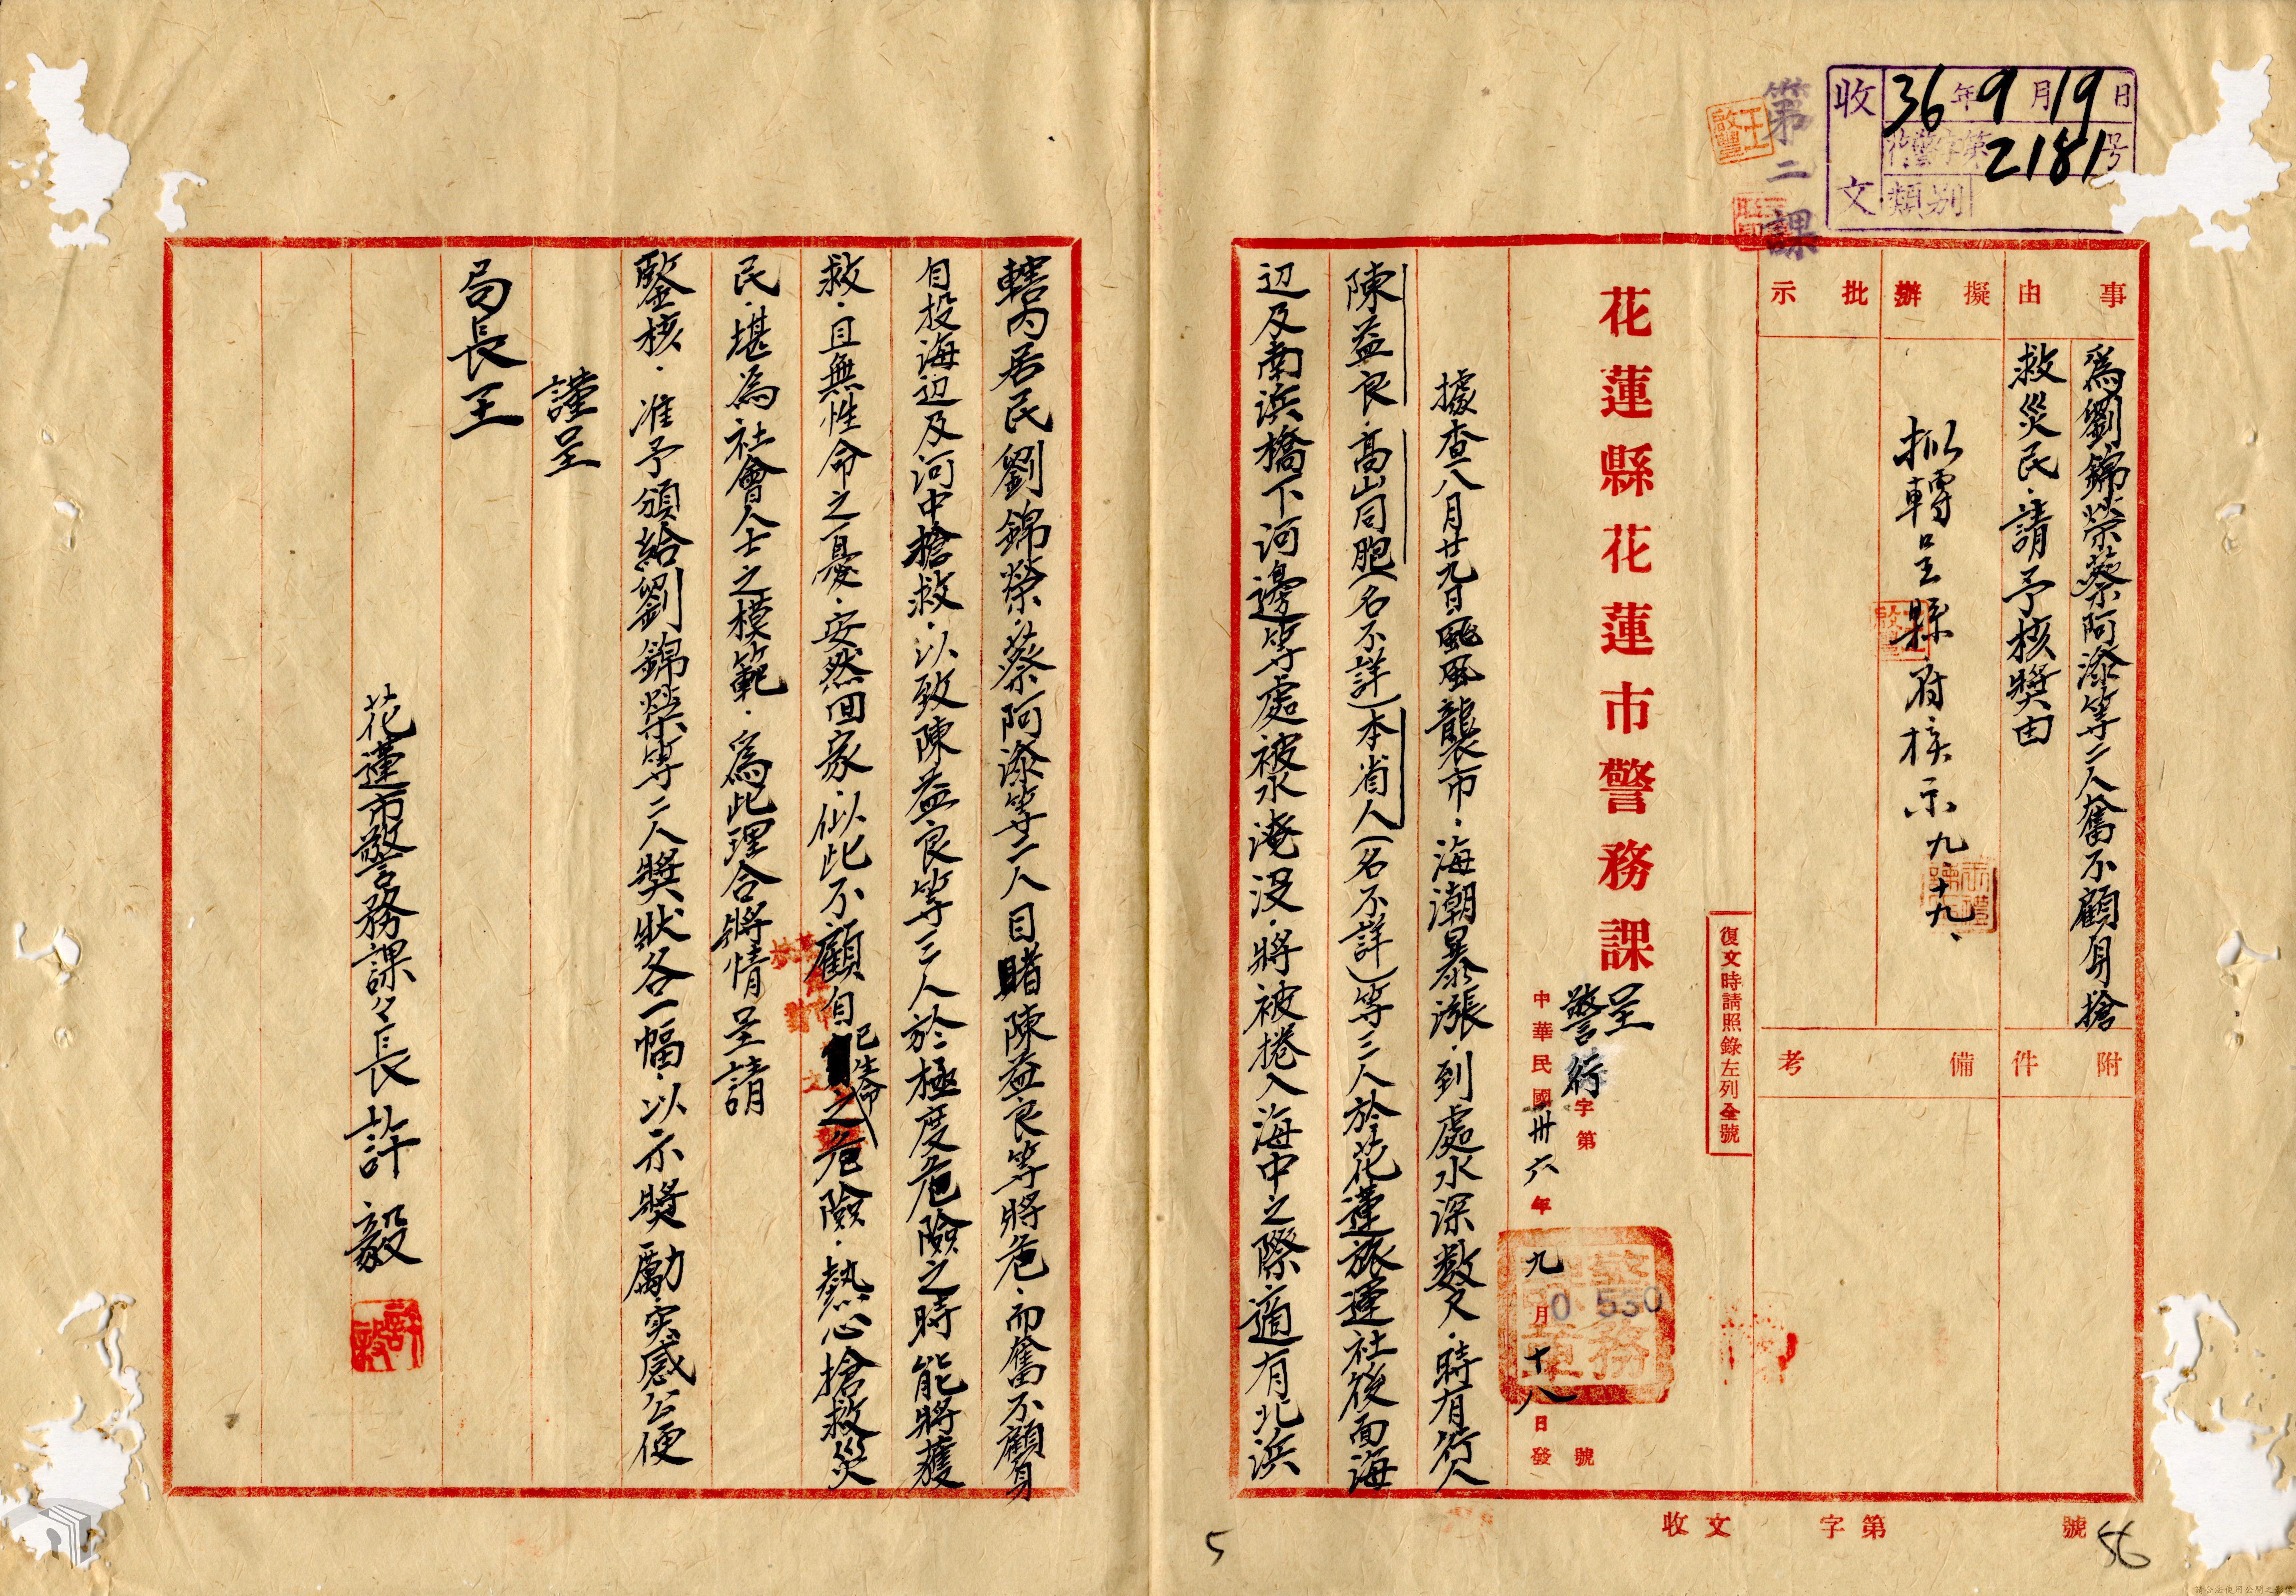 收文
36年9月19日
花警字第2181号
類別
第二課
事由
擬辦
批示
為劉錦榮蔡阿添等二人奮不顧身搶
救災民．請予核獎由
擬轉呈縣府核示九、十九、
附件
備考
復文時請照錄左列全號
花蓮縣花蓮市警務課
呈
警行字第 號
0 550
中華民國卅六年九月十八日發
據查八月廿九日颱風襲市．海潮暴漲．到處水深数丈．時有行人
陳益良．高山同胞(名不詳)本省人(名不詳)等三人於花蓮旅運社後面海
辺及南浜橋下河邊等處被水淹没．將被捲入海中之際．適有北浜
轄内居民劉錦榮．蔡阿添等二人目睹陳益良等將危．而奮不顧身
自投海辺及河中搶救．以致陳益良等三人於極度危險之時能將獲
救．且無性命之憂．安然回家．似此不顧自己生命之危險．熱心搶救災
民．堪為社會人士之模範．為此理合將情呈請
鑒核．准予頒給劉錦榮等二人獎狀各一幅．以示獎勵．実感公便
謹呈
局長王
花蓮市警務課々長許毅
收文 字第 號
5
56